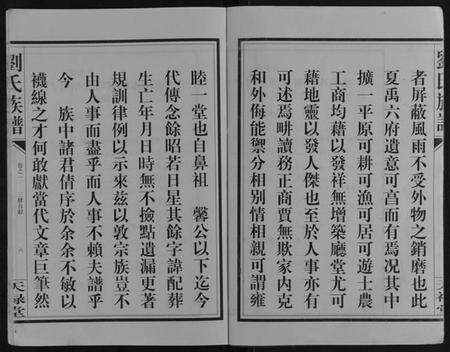 劉氏族譜
者屏蔽風雨不受外物之銷磨也此
夏禹六府遺意可啻而有焉況其中
擴一平原可耕可漁可居可遊士農
工商均藉以發祥無增築廳堂尤可
藉地靈以發人傑也至於人事亦有
可述焉畊讀務正商賈無欺家內克
和外侮能禦分相別情相親可謂雍
睦一堂也自鼻祖 馨公以下迄今
代傳念餘昭若日星其餘字諱配葬
生亡年月日時無不撿點遺漏更著
規訓律例以示來茲以敦宗族豈不
由人事而盡乎而人事不賴夫譜乎
今 族中諸君倩序於余余不敏以
襪線之才何敢獻當代文章巨筆然
劉氏族譜
卷之一
六
天祿堂